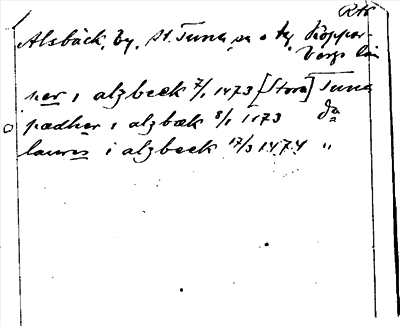 RAP
Alsbäck, by, St. Tuna sn o tg Koppar-
bergs län
per i alzbeck 7/1 1473 [Stora] Tuna
pædher i alzbæk 8/1 1173 do
laurs i alzbeck 17/3 1474 "